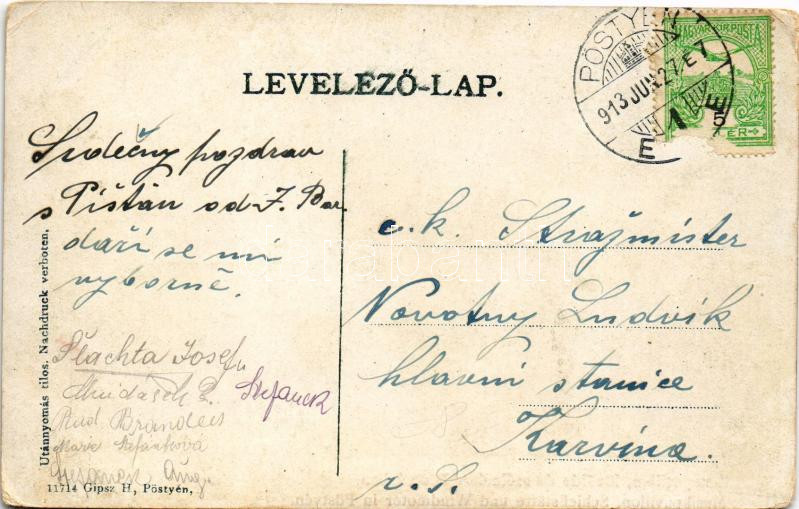 LEVELEZŐ-LAP.
PÖSTYÉN
913 JUN. 27. E
MAGYAR KIR. POSTA
Srdečný pozdrav
s Píštán od J. Bar.
daří se mi
vyborně.
Plachta Josef
Stefanek
Rud Brandeis
Marie
c.k. Stražmister
Novotny Ludvík
hlavni stanice
Karvina.
r. S.
Utánnyomás tilos. Nachdruck verboten.
11714 Gipsz H, Pöstyén,